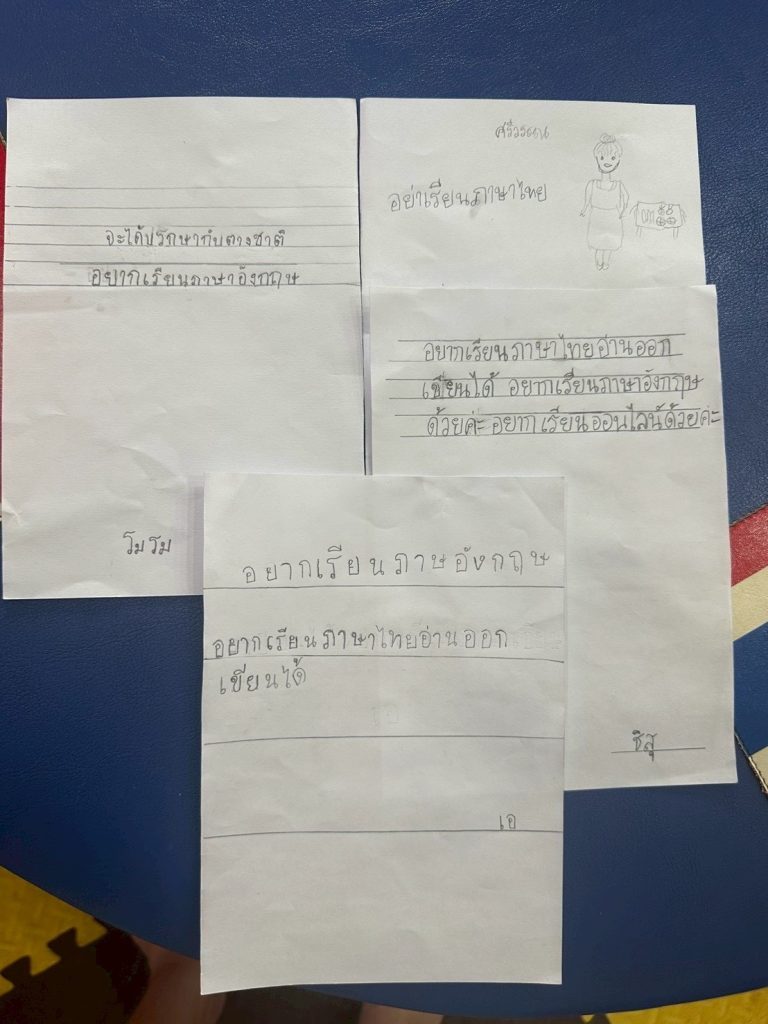 จะได้ปรกษากับตางชาติ
อยากเรียนภาษาอังกฤษ
โมโม
ศรีวรรณ
อย่าเรียนภาษาไทย
อยากเรียนภาษาไทยอ่านออก
เขียนได้ อยากเรียนภาษาอังกฤษ
ด้วยค่ะ อยากเรียนออนไลน์ด้วยค่ะ
ชิสุ
อยากเรียนภาษอังกฤษ
อยากเรียนภาษาไทยอ่านออก
เขียนได้
เอ